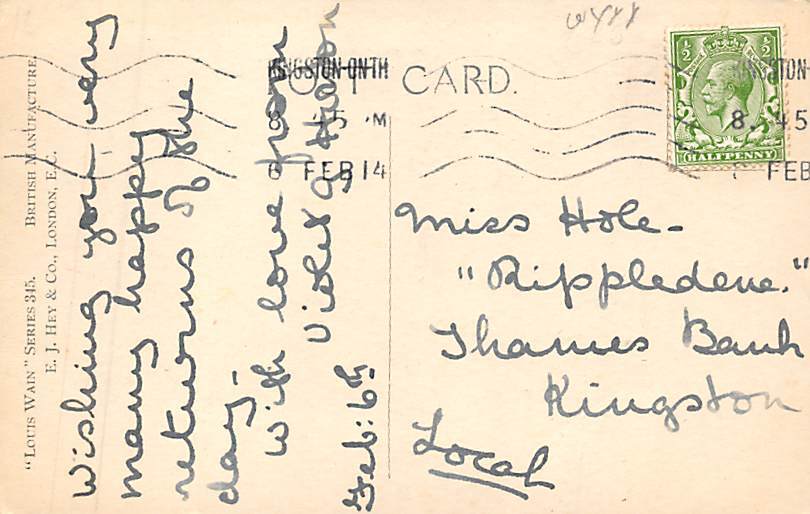 "LOUIS WAIN" SERIES 345. BRITISH MANUFACTURE.
E. J. HEY & CO., LONDON, E.C.
Wishing you very
many happy
returns of the
day -
With love from
Violet
Feb: 6th
POST CARD.
KINGSTON-ON-TH
8. 45 M
6 FEB 14
½ ½
HALFPENNY
KINGSTON-
8. 45
FEB
Miss Hole -
"Rippledene."
Thames Bank
Kingston
Local